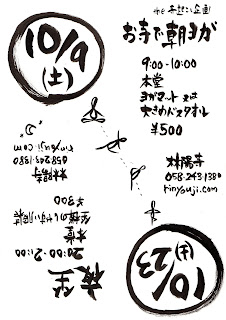 10/9
(土)
お寺で朝ヨガ
9:00-10:00
本堂
ヨガマット又は
大きめバスタオル
¥500
林陽寺
058-243-1380
rinyouji.com
10/23
(土)
夜坐
20:00-21:00
本堂
¥300
林陽寺
058-243-1380
rinyouji.com